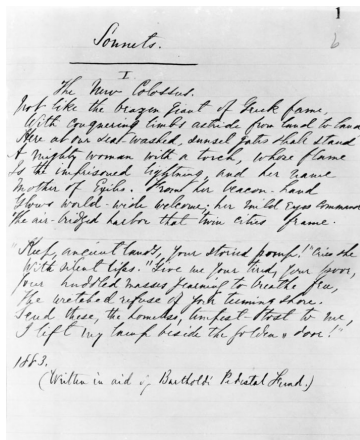 1
6
Sonnets.
I
The New Colossus.
Not like the brazen giant of Greek fame,
With conquering limbs astride from land to land;
Here at our sea-washed, sunset gates shall stand
A mighty woman with a torch, whose flame
Is the imprisoned lightning, and her name
Mother of Exiles. From her beacon-hand
Glows world-wide welcome; her mild eyes command
The air-bridged harbor that twin cities frame.
"Keep, ancient lands, your storied pomp!" cries she
With silent lips. "Give me your tired, your poor,
Your huddled masses yearning to breathe free,
The wretched refuse of your teeming shore.
Send these, the homeless, tempest-tost to me,
I lift my lamp beside the golden door!"
1883.
(Written in aid of Bartholdi Pedestal Fund.)